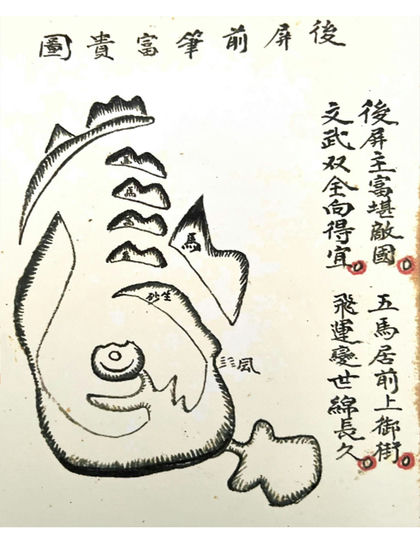 後屏前筆富貴圖
後屏主富堪敵國
五馬居前上御街
文武双全向得宜
飛運變世綿長久
馬
馬
馬
馬
馬
生
風